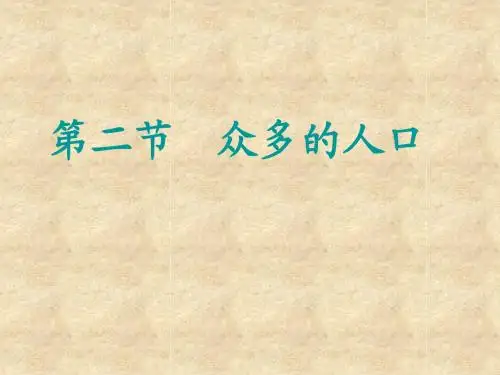 第二节 众多的人口